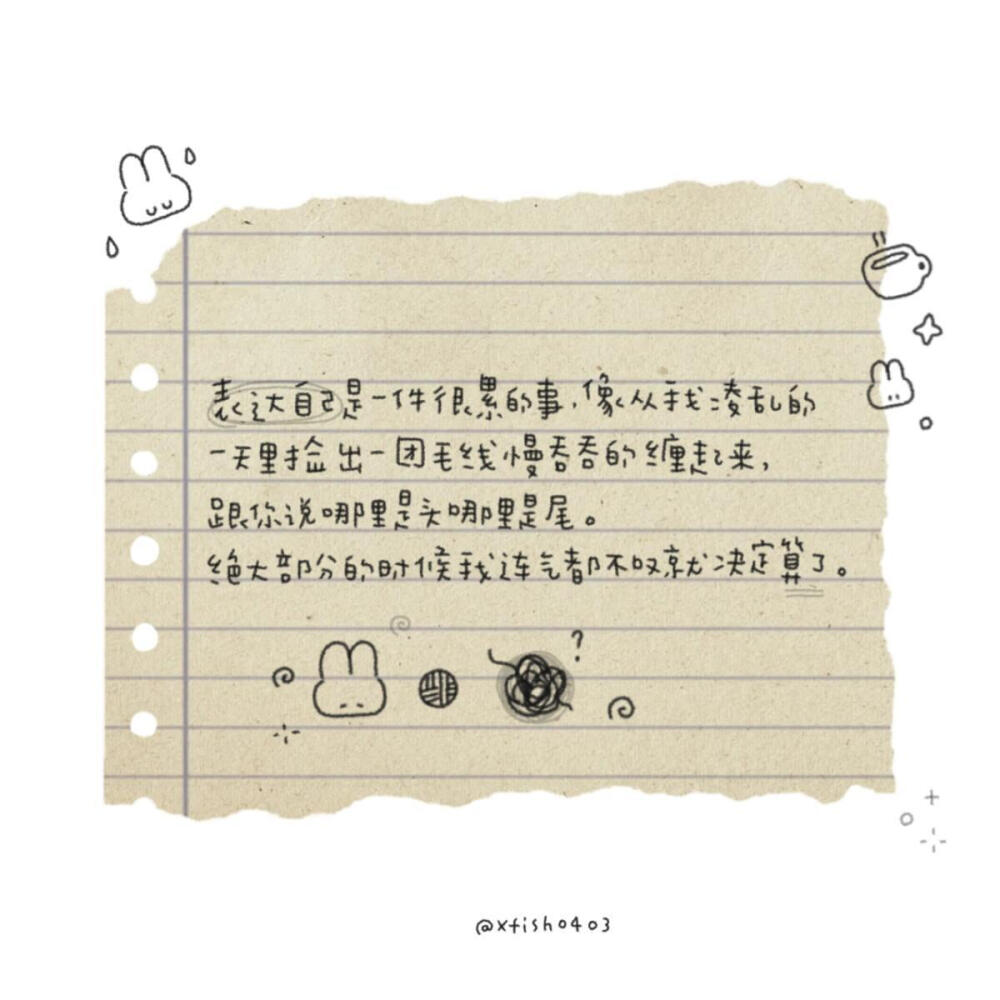 表达自己是一件很累的事，像从我凌乱的
一天里捡出一团毛线慢吞吞的缠起来，
跟你说哪里是头哪里是尾。
绝大部分的时候我连气都不叹就决定算了。
?
@xfish0403